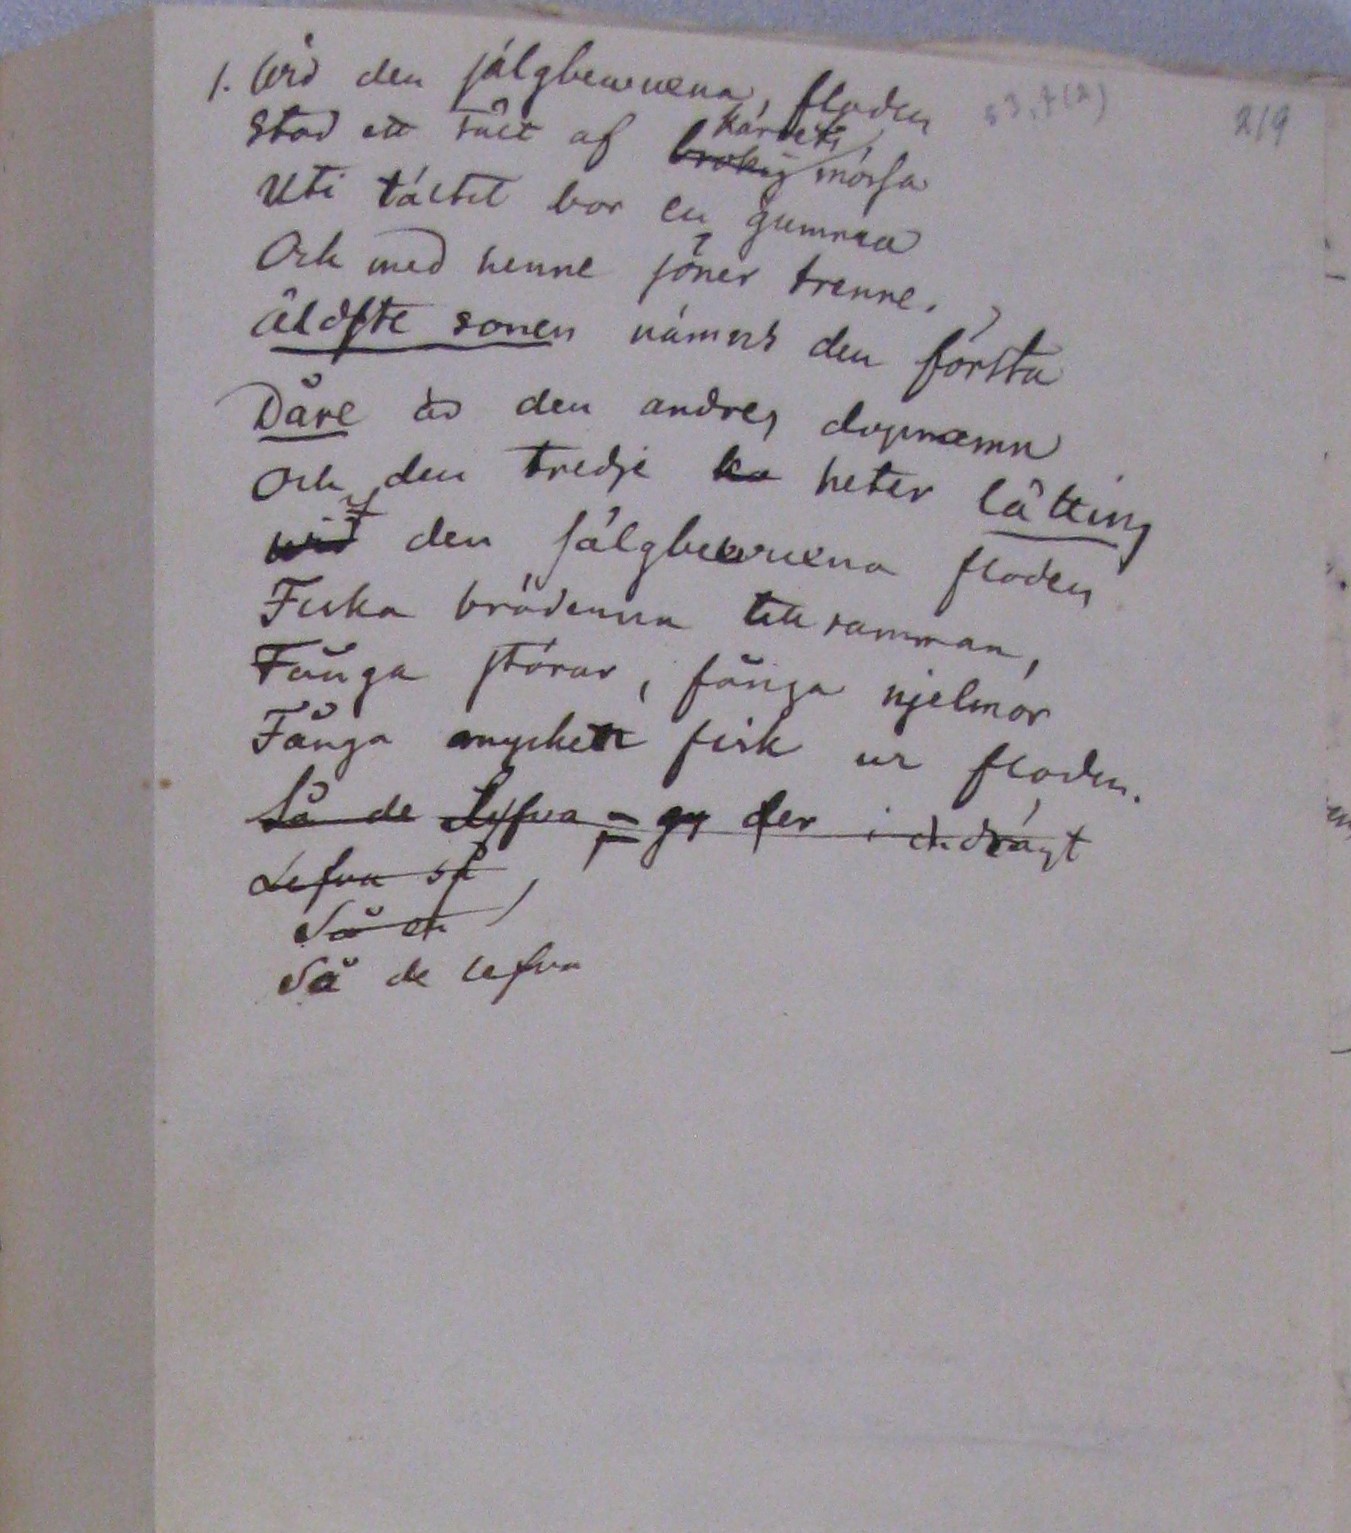 1. Wid den sälgbewuxna, floden
53.7(2)
219
Stod ett tält af brokig kärrets mössa
Uti tältet bor en gumma
Och med henne söner trenne.
Äldste sonen nämns den första
Dåre är den andres dopnamn
Och den tredje ko heter lätting
wid den sälgbewuxna floden
Fiska bröderna till samman,
Fånga störar, fånga njelmor
Fånga mycket fisk ur floden.
Så de Lefva der i endrägt
Lefva så,
Så
Så de lefva